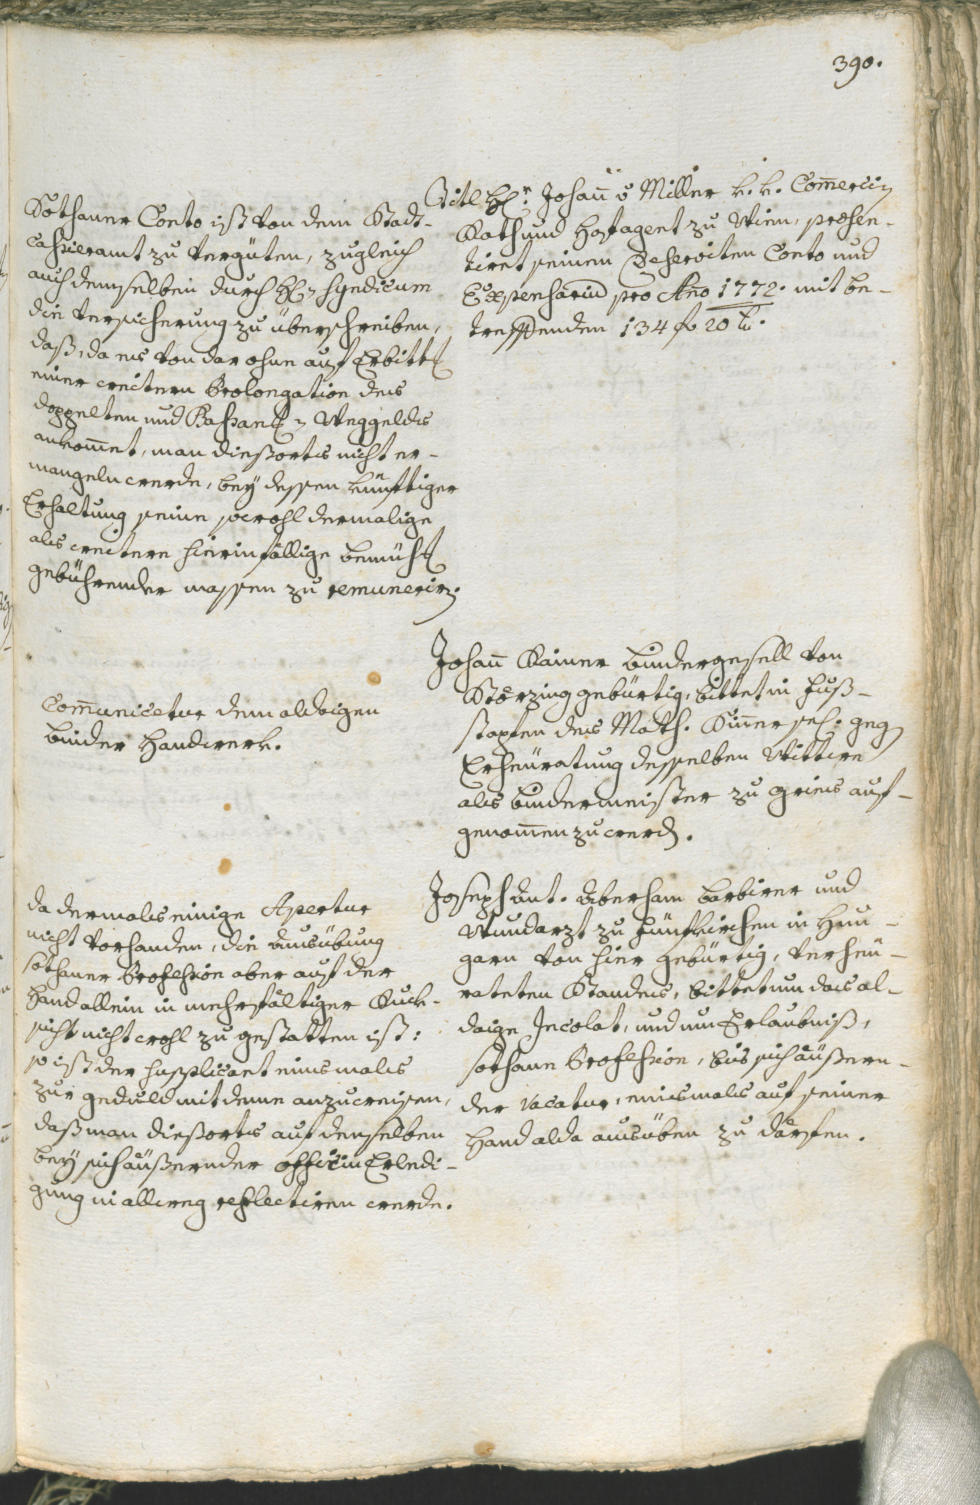 390.
Titl H: Johañ v Miller k. k. Com̃ercien
Rath und Hofagent zu Wien, præsen-
tiret seinen Deserviten Conto und
Expensarium pro Año 1772. mit be-
treffenden 134 f 20 k.
Sothaner Conto ist von dem Stadt-
Cassieramt zu vergüten, zugleich
auch demselben durch H: Syndicum
die Versicherung zu überschreiben,
daß, da es von dar ohne auf Erbitt
einer weitern Prolongation des
doppelten und Passant Weggeldes
ankom̃et, man diesorts nicht er-
mangeln werde, bey dessen künftiger
Erhaltung seine sowohl dermalige
als weitere hierinfällige bemüh
gebührender massen zu remunerirn.
Johañ Rainer bindergesell von
Störzing gebürtig, bittet in fuß-
stapfen des Math. sel. geg
Erheüratung desselben Wittwe
als bindermeister zu Gries auf-
genom̃en zu werd.
Com̃unicetur dem aldoigen
binder Handwerk.
Joseph Ant. Aberham barbirer und
Wundarzt zu fünfkirchen in Hun-
garn von hier gebürtig, verheü-
rateten Standes, bittet um das al-
doige Incolat, und um Erlaubniß,
sothane Profession, bis sich äußern-
der Vacatur, einsmals auf seiner
Hand alda ausüben zu därfen.
da dermals einige Apertur
nicht vorhanden, die Ausübung
sothaner Profession aber auf der
Hand allein in mehrfältiger Ruck-
sicht nicht wohl zu gestatten ist:
so ist der supplicant einsmals
zur geduld mit deme anzuweisen,
daß man diesorts auf denselben
bey sich äußernder officin Erledi-
gung in allweg reflectiren werde.